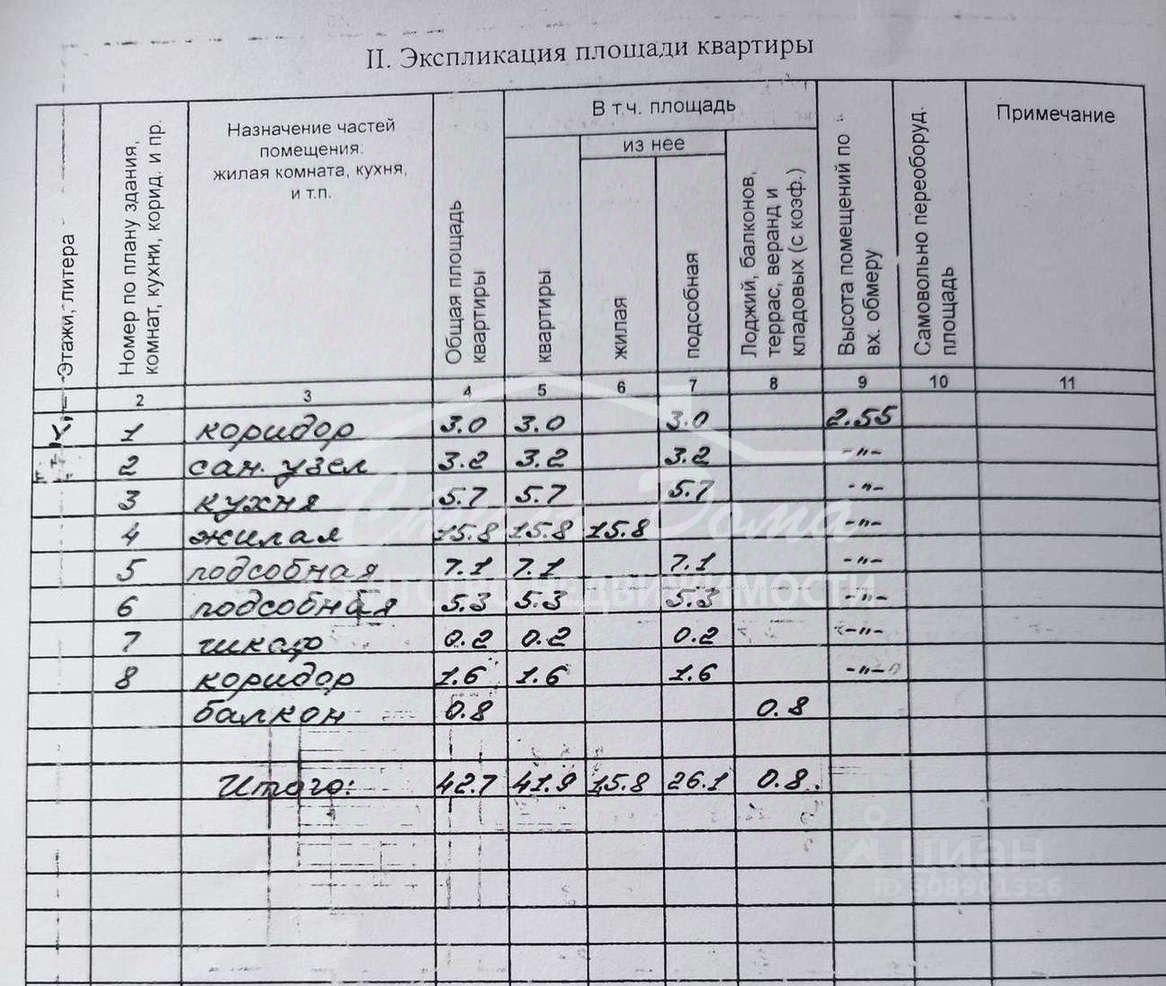 II. Экспликация площади квартиры
Этажи, литера
Номер по плану здания, комнат, кухни, корид. и пр.
Назначение частей
помещения:
жилая комната, кухня,
и т.п.
Общая площадь квартиры
В т.ч. площадь
квартиры
из нее
жилая
подсобная
Лоджий, балконов, террас, веранд и кладовых (с коэф.)
Высота помещений по вх. обмеру
Самовольно переоборуд. площадь
Примечание
2 3 4 5 6 7 8 9 10 11
1 коридор 3.0 3.0 3.0 2.55
2 сан. узел 3.2 3.2 3.2 -"-
3 кухня 5.7 5.7 5.7 -"-
4 жилая 15.8 15.8 15.8 -"-
5 подсобная 7.1 7.1 7.1 -"-
6 подсобная 5.3 5.3 5.3 -"-
7 шкаф 0.2 0.2 0.2 -"-
8 коридор 1.6 1.6 1.6 -"-
балкон 0.8 0.8
Итого: 42.7 41.9 15.8 26.1 0.8.
циан
ID 308901326